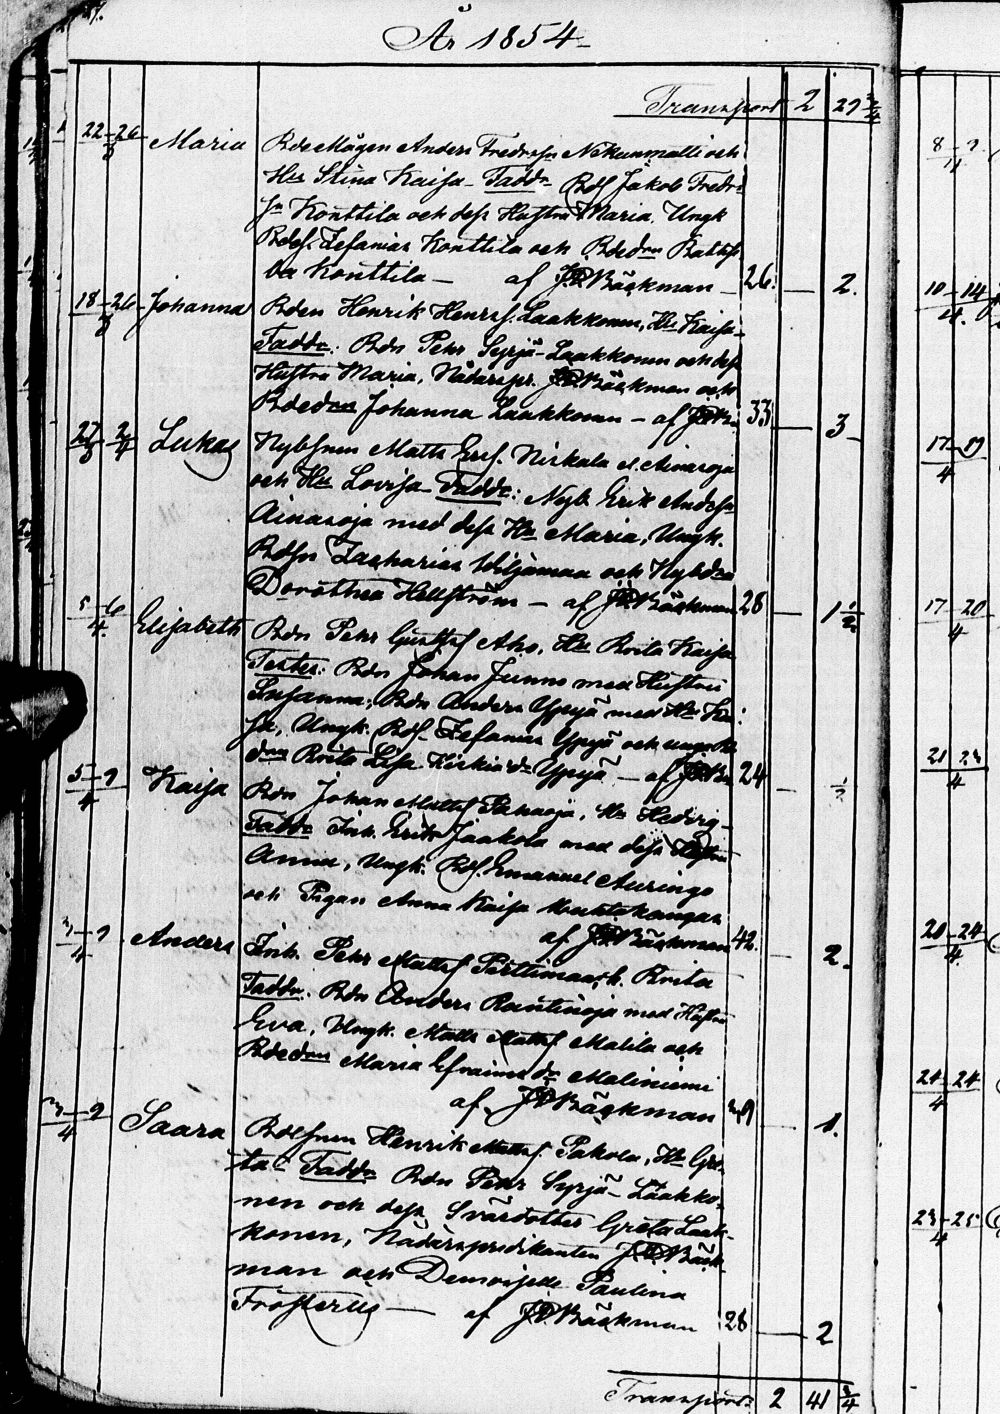 År 1854
Transport 2 29 3/4
22-26/3 Maria Bde Mågen Anders Fredrss Niskanmalli och
Hu Stina Kaisa Fadd: Bds Jakob Fredr:
sn Konttila och dess Hustru Maria, Ungk
Bdes. Zefanias Konttila och Bdedrn Bathse
ba Konttila — af JD Bäckman 26. 2.
18-26/3 Johanna Bden Henrik Henrss. Laakkonen, Hu Kaisa
Faddr: Bdn Petr Syrjä-Laakkonen och dess
Hustru Maria, Nådårspr. JD Bäckman och
Bdedrn Johanna Laakkonen — af JDB. 33 3
27/3 2/4 Lukas Nybsnen Matts Ers. Niskala el. Ainasoja
och Hu Lovisa Faddr: Nyb. Erik Anderss
Ainasoja med dess Hu Maria, Ungk.
Bdsn Zacharias Wiljamaa och Nybdrn
Dorothea Hellström — af JD Bäckman 28 1 1/2
5-6/4 Elisabeth Bdn Petr Gustafs Aho, Hu Brita Kaisa
Testes: Bdn Johan Junno med Hustru
Susanna, Bdn Anders Yppyä med Hu
Ungk. Bds. Zefanias Yppyä och
Brita Lisa Yppyä — af JDB. 24 1/2
5-9/4 Kaisa Bdn Johan Matts Pahaoja, Hu Hedvig
Faddr Inh. Erik Jaakola med dess Hustru
Anna, Ungk. Bds. Emanuel Auringo
och Pigan Anna Kaisa Mustakangas
af JD Bäckman 42. 2.
3-9/4 Anders Inh. Petr Matts Perttimaa, h. Brita
Faddr. Bdn Anders Rautiooja med Hustru
Eva, Ungk. Matts Mattss Malila och
Bdedrn Maria Efraimsdr Maliniemi
af JD Bäckman 1.
3-9/4 Saara Bdesnen Henrik Matts. Pakola, Hu Gre-
ta Faddr Bdn Petr Syrjä-Laakko-
nen och dess Svärdotter Greta Laak-
konen, Nådårspredikanten JD Bäck-
man och Demoiselle Paulina
Frosterus — af JD Bäckman 28 2
Transport 2 41 3/4
8-9/4
10-14/4.
17-19/4
17-20/4
21-23/4
20-24/4
24-24/4
23-25/4